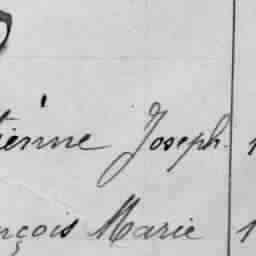 ienne Joseph. 1
nçois Marie 1